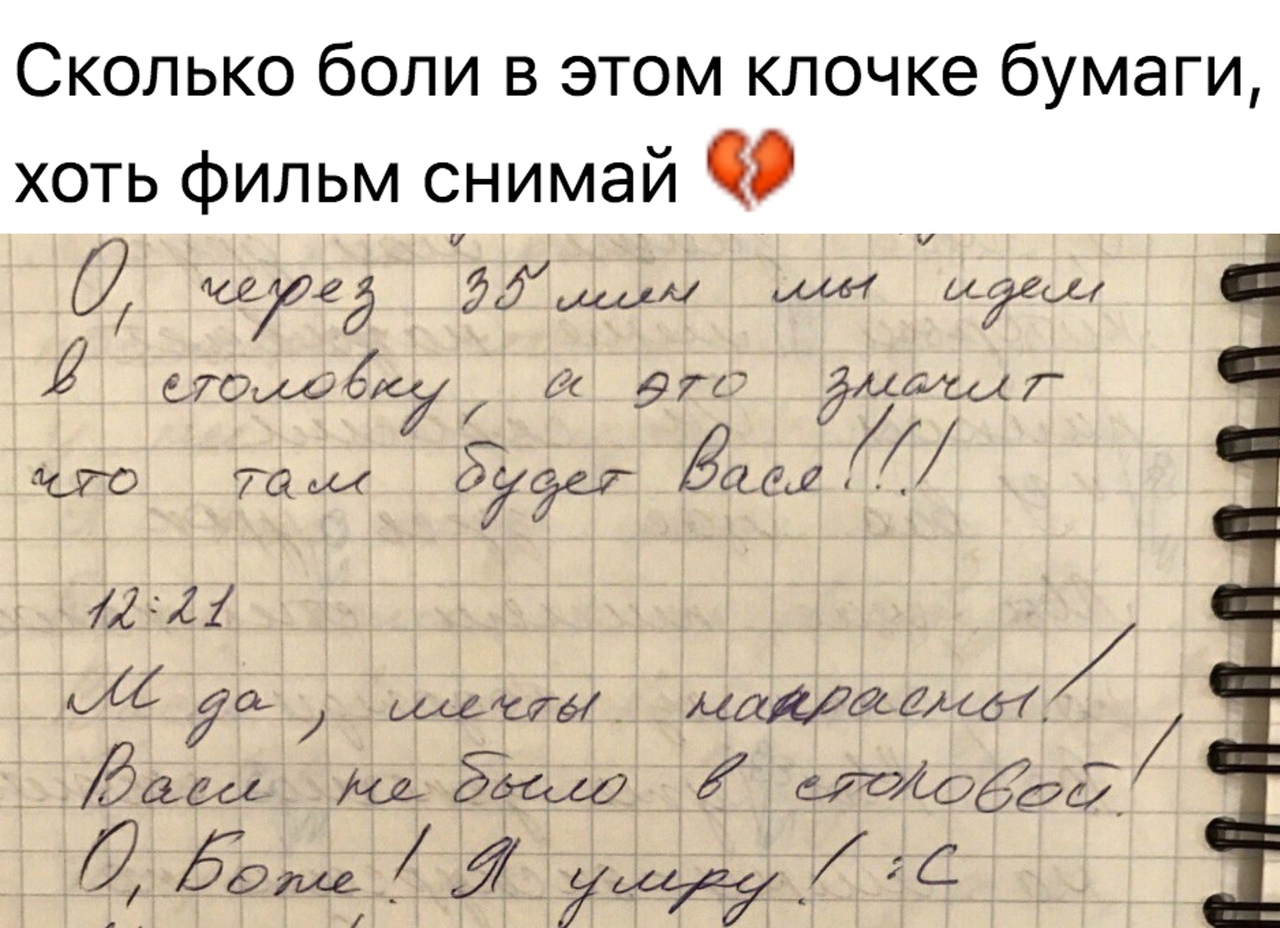 Сколько боли в этом клочке бумаги,
хоть фильм снимай 💔
О, через 35 мин мы идем
в столовку, а это значит
что там будет Вася!!!
12:21
М да, мечты напрасны!
Васи не было в столовой!
О, Боже! Я умру! :С